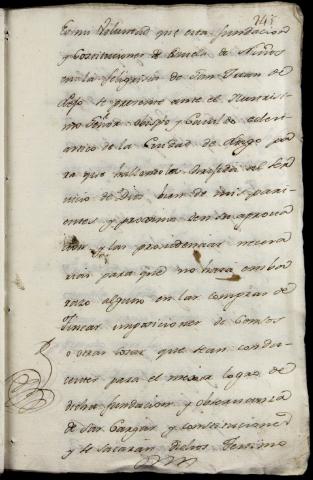 241
Es mi Voluntad que esta fundacion
y Constituciones de Escuela de Niños
en la feligresia de San Juan de
se presente ante el Illustrisi-
mo Señor obispo y eclesi-
astico de la Ciudad de Lugo pa-
ra que hallandolas dirigida al ser-
vicio de Dios bien de mis pari-
entes y proximo den su aprova-
cion y las providencias necesa-
rias para que no haya emba-
razo alguno en las compras de
fincas imposiciones de Censos
o otras cosas que sean condu-
centes para el mejor logro de
dicha fundacion y observanza
de sus Cargas y constituciones
y se sacarán dichos